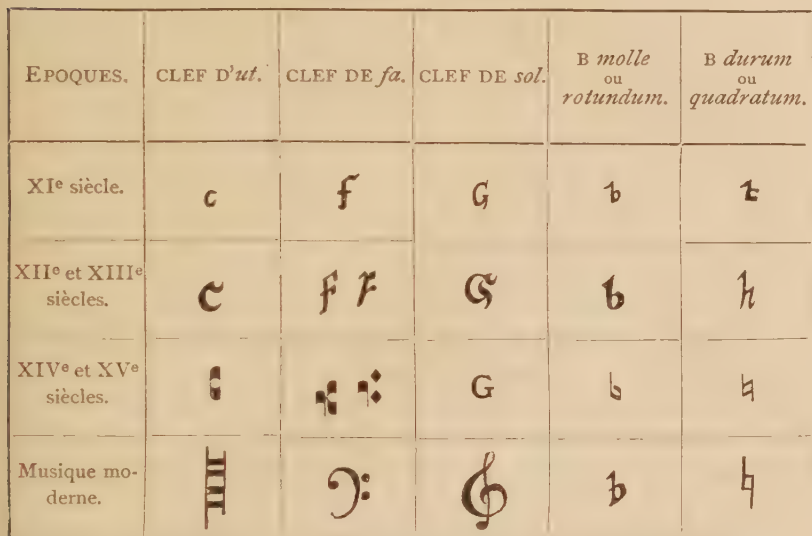 EPOQUES. CLEF D'ut. CLEF DE fa. CLEF DE sol. B molle ou rotundum. B durum ou quadratum.
XIe siècle. c f G b
XIIe et XIIIe siècles. C f f G b h
XIVe et XVe siècles. G ♭ ♮
Musique moderne. 𝄡 𝄢 𝄞 ♭ ♮